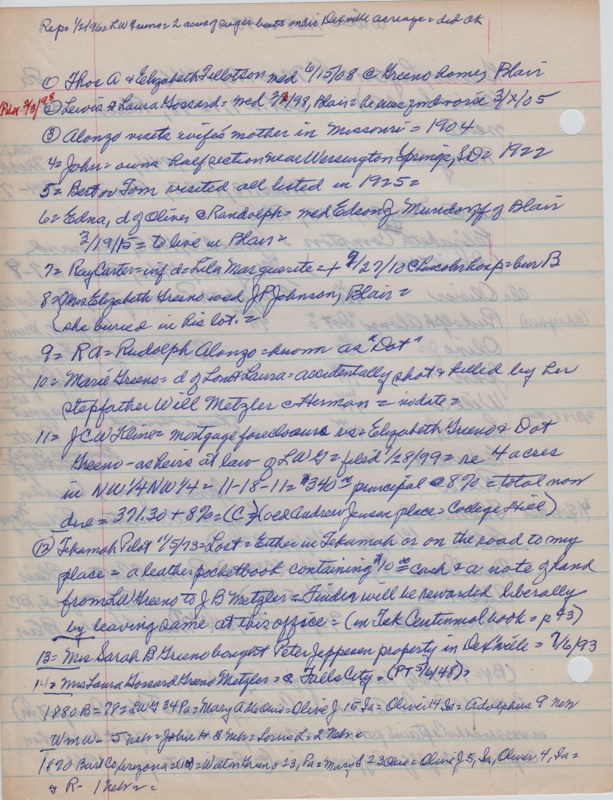 Reps 1/2/96= LW Greeno = 2 acres of sugar beets on his DeSville acreage = did ok
① Thos A & Elizabeth Tillotson med 6/15/08 @ Greeno home, Blair
Pilot 2/3/98 ② Lewis & Laura Gossard = med 98, Blair = he was 2nd 3/X/05
③ Alonzo visits wife's mother in Missouri = 1904
4= John = owns half section near Wessington Springs, SD = 1922
5= Bert or Tom visited all listed in 1925=
6= Edna, d of Oliver @ Randolph = med Edson J Mundorff of Blair
3/19/15 = to live in Blair =
7= Ray Carter = inf d = Lila Marguerite = + 9/27/10 @ Lincoln hosp = bur B
8= Mrs Elizabeth Greeno wed J P Johnson, Blair =
she buried in his lot. =
9= RA = Rudolph Alonzo = known as "Dot"
10= Marie Greeno = d of Lon & Laura = accidentally shot & killed by her
stepfather Will Metzler @ Herman = no date =
11= J C W Kline = mortgage foreclosure vs = Elizabeth Greeno & Dot
Greeno = as heirs at law of LWG = filed 1/28/99 = re 4 acres
in NW¼NW¼ = 11-18-11 = $340 00 principal @ 8% = total now
due = 371.30 + 8% = (old Andrew Jensen place = College Hill)
⑫ Tekamah Pilot 1/5/73 = Lost = Either in Tekamah or on the road to my
place = a leather pocketbook containing $10 00 cash & a note of hand
from LW Greeno to J B Metzler = Finder will be rewarded liberally
by leaving same at this office = (in Tek Centennial book = p 43)
13= Mrs Sarah B Greeno bought Peter Jeppesen property in DeSville = 7/6/93
14= Mrs Laura Gossard Greeno Metzler = @ Falls City = (PT 9/6/48) =
1880 B = 78 = LWG 34 Pa = Mary A 26 Ohio = Olive J 15 Ia = Oliver H Ia = Adolphus 9 Neb
Wm W = 5 Neb = John H 3 Neb = Lorin L = 2 Neb =
1870 Burt Co, Arizona = Greeno 23, Pa = Mary 23 Ohio = Olive J 5, Ia, Oliver 4, Ia =
& R- 1 Neb = =